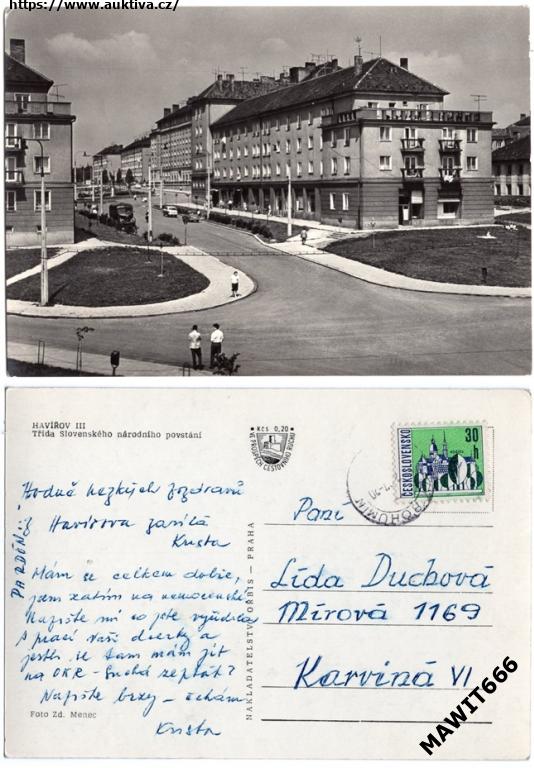 https://www.auktiva.cz/
HAVÍŘOV III
Třída Slovenského národního povstání
Kčs 0,20
VE PROSPĚCH CESTOVNÍHO RUCHU
ČESKOSLOVENSKO
30 h
BOHUMÍN
Hodně hezkých pozdravů
z Havířova zasílá
Krista
PARDÓN!
Mám se celkem dobře,
jsem zatím na nemocenské
Napište mi co jste vyřídila
s prací Vaší dcerky a
jestli se tam mám jít
na OKR - Suchá zeptat?
Napište brzy - čekám
Krista
Foto Zd. Menec
NAKLADATELSTVÍ ORBIS — PRAHA
Paní
Lída Duchová
Mírová 1169
Karviná VI
MAWIT666